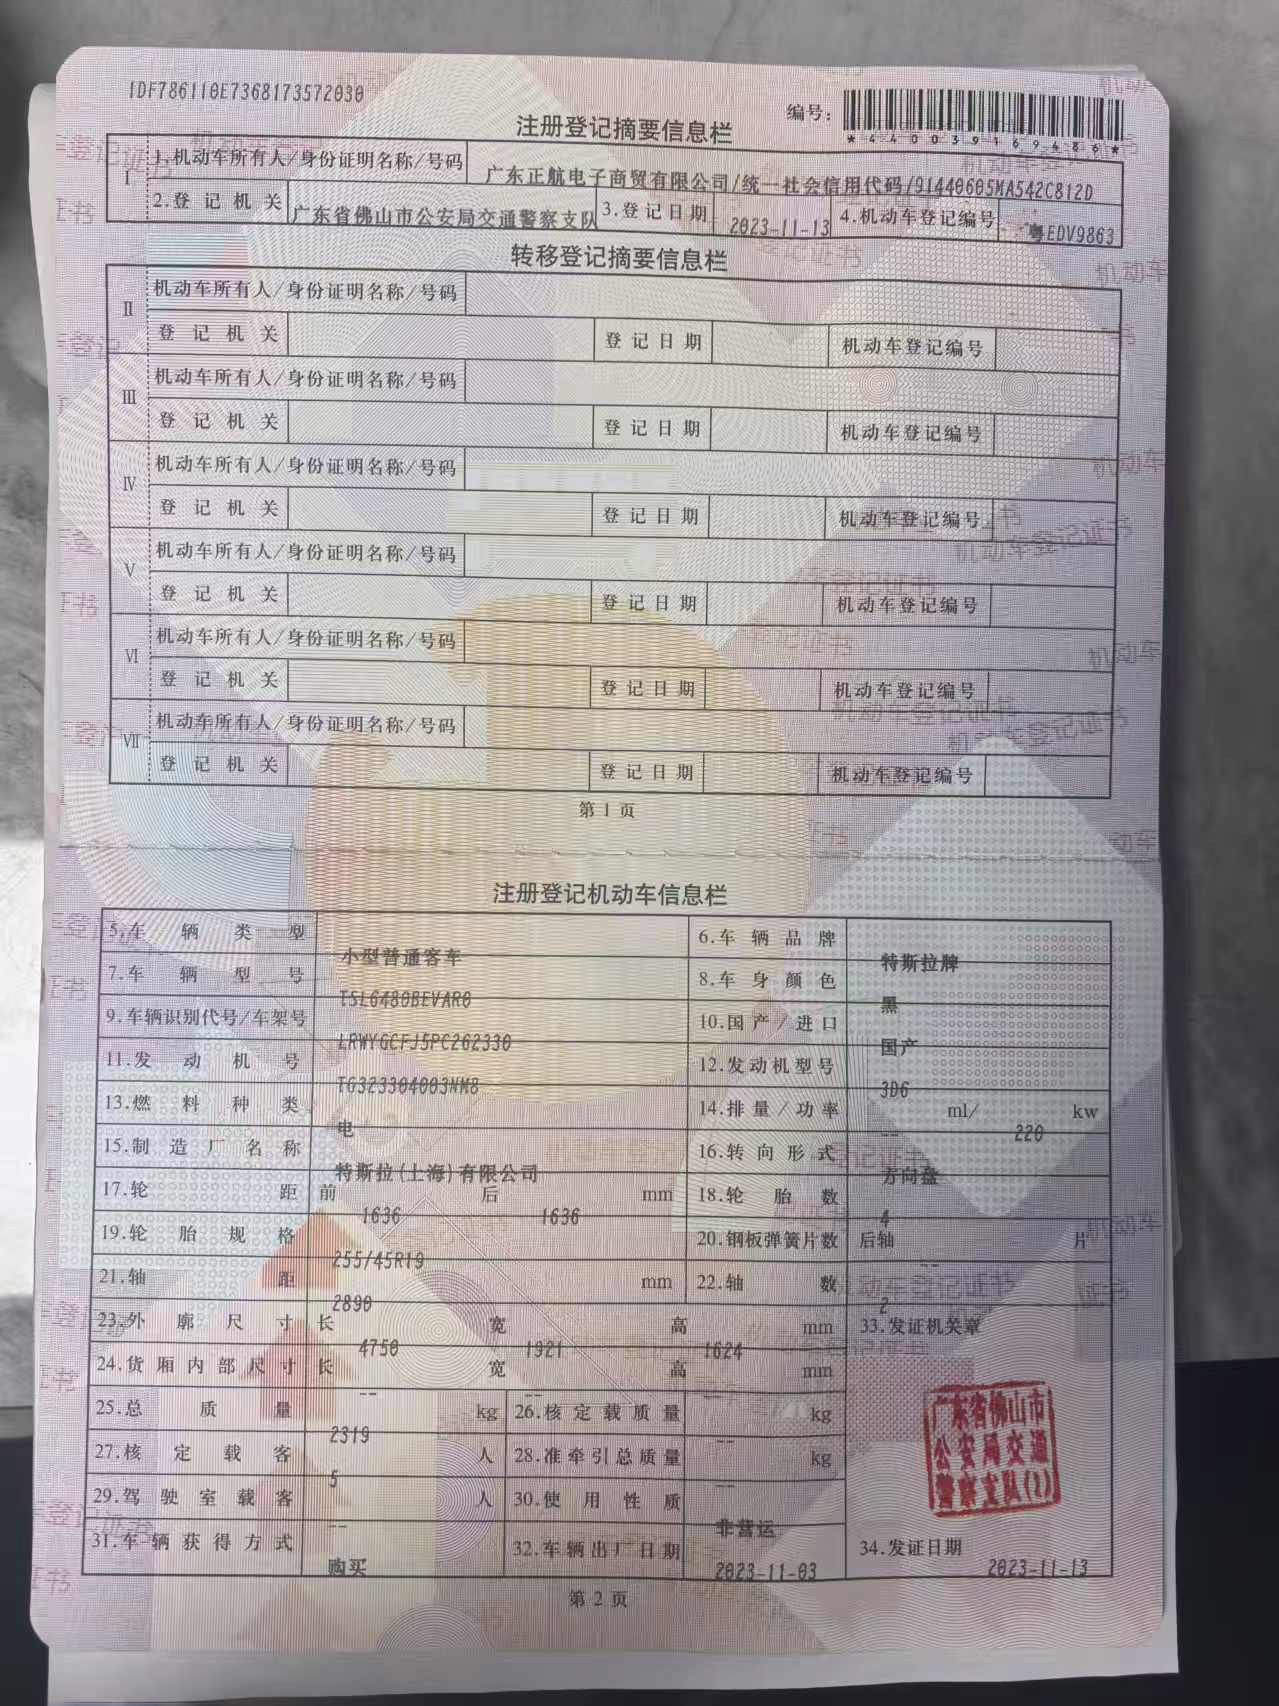 1DF786110E7368173572030
编号：
*440039169486*
注册登记摘要信息栏
I
1.机动车所有人/身份证明名称/号码
广东正航电子商贸有限公司/统一社会信用代码/91440605MA542C812D
2.登记机关 广东省佛山市公安局交通警察支队 3.登记日期 2023-11-13 4.机动车登记编号 粤EDV9863
转移登记摘要信息栏
II
机动车所有人/身份证明名称/号码
登记机关 登记日期 机动车登记编号
III
机动车所有人/身份证明名称/号码
登记机关 登记日期 机动车登记编号
IV
机动车所有人/身份证明名称/号码
登记机关 登记日期 机动车登记编号
V
机动车所有人/身份证明名称/号码
登记机关 登记日期 机动车登记编号
VI
机动车所有人/身份证明名称/号码
登记机关 登记日期 机动车登记编号
VII
机动车所有人/身份证明名称/号码
登记机关 登记日期 机动车登记编号
第 1 页
注册登记机动车信息栏
5.车辆类型 小型普通客车 6.车辆品牌 特斯拉牌
7.车辆型号 TSL6480BEVAR0 8.车身颜色 黑
9.车辆识别代号/车架号 LRWYGCFJ5PC262330 10.国产/进口 国产
11.发动机号 TG323304003NM8 12.发动机型号 3D6
13.燃料种类 电 14.排量/功率 -- ml/ 220 kw
15.制造厂名称 特斯拉(上海)有限公司 16.转向形式 方向盘
17.轮距 前 1636 后 1636 mm 18.轮胎数 4
19.轮胎规格 255/45R19 20.钢板弹簧片数 后轴 -- 片
21.轴距 2890 mm 22.轴数 2
23.外廓尺寸 长 4750 宽 1921 高 1624 mm 33.发证机关章
24.货厢内部尺寸 长 -- 宽 -- 高 -- mm
25.总质量 2319 kg 26.核定载质量 -- kg
广东省佛山市
公安局交通
警察支队(2)
27.核定载客 5 人 28.准牵引总质量 -- kg
29.驾驶室载客 -- 人 30.使用性质 非营运
31.车辆获得方式 购买 32.车辆出厂日期 2023-11-03 34.发证日期 2023-11-13
第 2 页